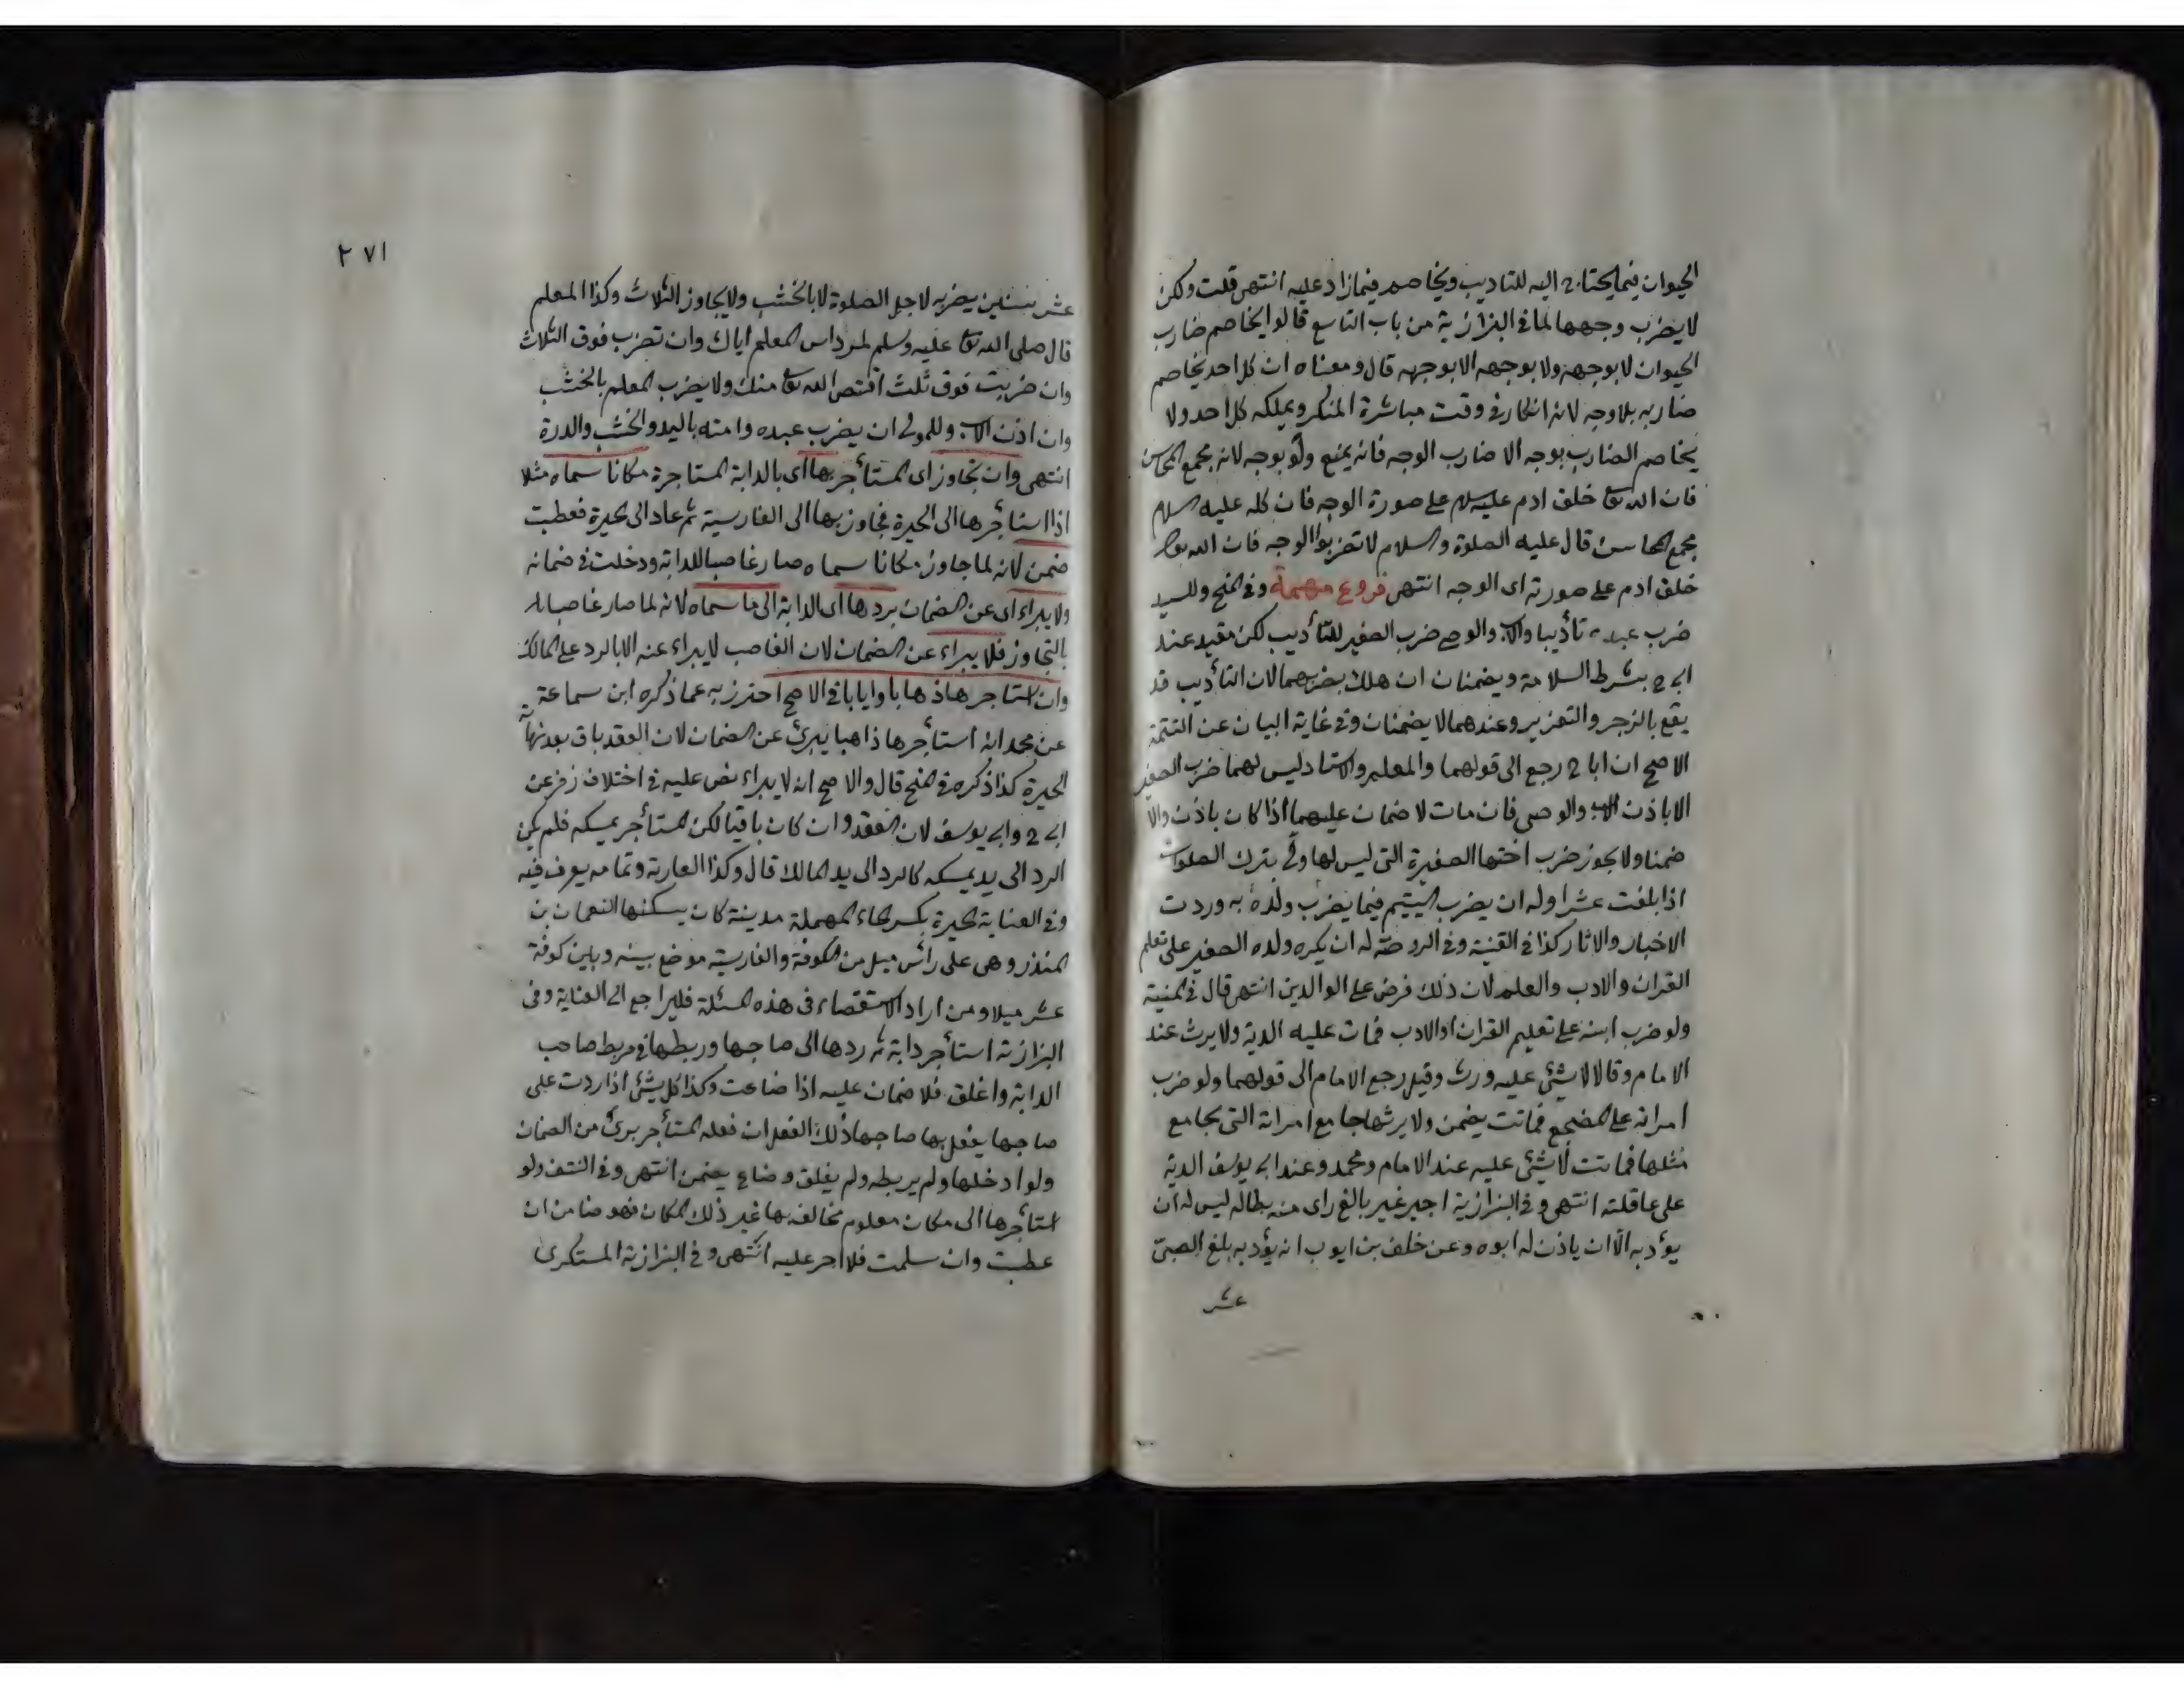 الحيوان فيما يحتاج اليه للتاديب ويخاصم فيما زاد عليه انتهى قلت ولكن
لا يضرب وجهها لما في البزازية من باب التاسع قالوا يخاصم ضارب
الحيوان لا بوجهه ولا بوجهه الا بوجهه قال ومعناه ان كل احد يخاصم
ضاربه بلا وجه لانه انكار في وقت مباشرة المنكر ويملكه كل احد ولا
يخاصم الضارب بوجه الا ضارب الوجه فانه يمنع ولو بوجه لانه مجمع المحاسن
فان الله تعا خلق ادم عليه السلام على صورة الوجه فان كله عليه السلام
مجمع المحاسن قال عليه الصلوة والسلام لا تضربوا الوجه فان الله تعا
خلق ادم على صورته اى الوجه انتهى فروع مهمة وفي المنح وللسيد
ضرب عبده تأديبا والاب والوصى ضرب الصغير للتأديب لكن مقيد عند
ابى ح بشرط السلامة ويضمنان ان هلك بضربهما لان التأديب قد
يقع بالزجر والتعزير وعندهما لا يضمنان وفي غاية البيان عن التتمة
الاصح ان ابا ح رجع الى قولهما والمعلم والاستاد ليس لهما ضرب الصغير
الا باذن الاب والوصى فان مات لا ضمان عليهما اذا كان باذن والا
ضمنا ولا يجوز ضرب اختها الصغيرة التى ليس لها ولى بترك الصلوات
اذا بلغت عشرا وله ان يضرب اليتيم فيما يضرب ولده به وردت
الاخبار والاثار كذا في القنية وفي الروضة له ان يكره ولده الصغير على تعلم
القران والادب والعلم لان ذلك فرض على الوالدين انتهى قال في المنية
ولو ضرب ابنه على تعليم القران او الادب فمات عليه الدية ولا يرث عند
الامام وقالا لا شئ عليه ورث وقيل رجع الامام الى قولهما ولو ضرب
امراته على المضجع فماتت يضمن ولا يرثها جامع امراته التى يجامع
مثلها فماتت لا شئ عليه عند الامام ومحمد وعند ابى يوسف الدية
على عاقلته انتهى وفي البزازية اجير غير بالغ راى منه بطالة ليس له ان
يؤدبه الا ان ياذن له ابوه وعن خلف بن ايوب انه يؤدبه بلغ الصبى
عشر
٢٧١
عشر سنين يضربه لاجل الصلوة لا بالخشب ولا يجاوز الثلاث وكذا المعلم
قال صلى الله تعا عليه وسلم لمرداس المعلم اياك وان تضرب فوق الثلاث
وان ضربت فوق ثلث اقتص الله تعا منك ولا يضرب المعلم بالخشب
وان اذن الاب وللمولى ان يضرب عبده وامته باليد والخشب والدرة
انتهى وان تجاوز اى المستأجر بها اى بالدابة المستاجرة مكانا سماه مثلا
اذا استأجرها الى الحيرة فجاوز بها الى القادسية ثم عاد الى الحيرة فعطبت
ضمن لانه لما جاوز مكانا سماه صار غاصبا للدابة ودخلت في ضمانه
ولا يبراء اى عن الضمان بردها اى الدابة الى ما سماه لانه لما صار غاصبا
بالتجاوز فلا يبراء عن الضمان لان الغاصب لا يبراء عنه الا بالرد على المالك
وان استاجرها ذهابا وايابا في الاصح احترز به عما ذكره ابن سماعة
عن محمد انه استأجرها ذاهبا يبرئ عن الضمان لان العقد باق بعد
الحيرة كذا ذكره في المنح قال والاصح انه لا يبراء نص عليه في اختلاف زفر عن
ابى ح وابى يوسف لان العقد وان كان باقيا لكن المستأجر يمسكه فلم يكن
الرد الى يد يمسكه كالرد الى يد المالك قال وكذا العارية وتمامه يعرف فيه
وفي العناية الحيرة بكسر الحاء المهملة مدينة كان يسكنها النعمان بن
المنذر وهى على رأس ميل من الكوفة والقادسية موضع بينه وبين كوفة
عشر ميلا ومن اراد الاستقصاء فى هذه المسئلة فليراجع الى العناية وفى
البزازية استأجر دابة ثم ردها الى صاحبها وربطها في مربط صاحب
الدابة واغلق فلا ضمان عليه اذا ضاعت وكذا كل شئ اذا ردت على
صاحبها يفعل بها صاحبها ذلك الفعل ان فعله المستأجر برئ من الضمان
ولو ادخلها ولم يربطه ولم يغلق وضاع يضمن انتهى وفي النتف ولو
استأجرها الى مكان معلوم فخالف بها غير ذلك المكان فهو ضامن ان
عطبت وان سلمت فلا اجر عليه انتهى وفي البزازية المستكرى